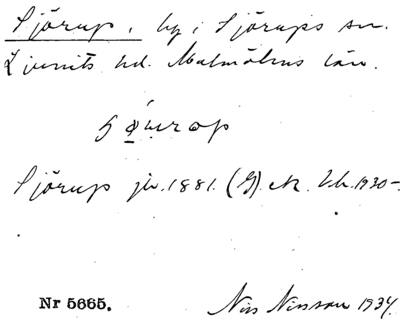 Sjörup, by i Sjörups sn.
Ljunits hd. Malmöhus län.
Sjörup jb. 1881. (G). 1930-.
Nr 5665. Nils Nilsson 1934.